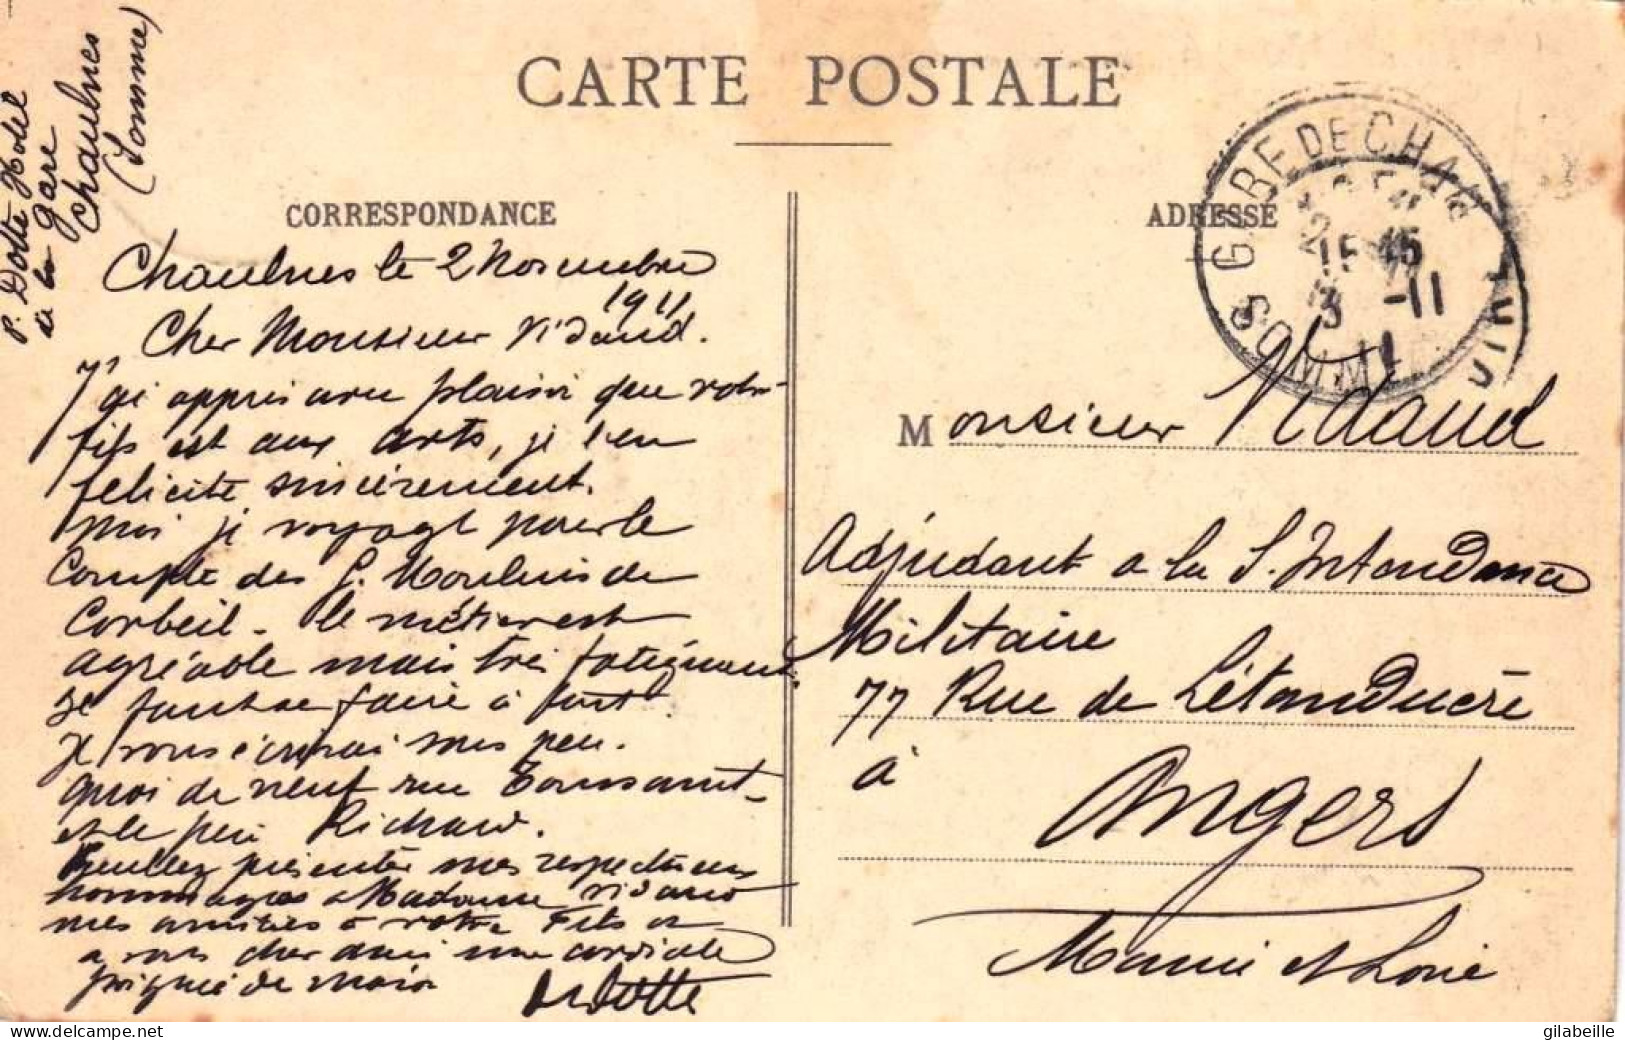 CARTE POSTALE
P. Dotte Hotel
de la gare
Chaulnes
(Somme)
CORRESPONDANCE
ADRESSE
GARE DE CHAULNES
15 45
3 -11
11
SOMME
Chaulnes le 2 Novembre
1911
Cher Monsieur Vidaud.
J'ai appris avec plaisir que votre
fils est aux arts, je l'en
felicite sincèrement.
Moi je voyage pour le
Compte des G. Moulins de
Corbeil - le métier est
agréable mais très fatiguant.
se faut se faire à tout.
Je vous écrirai sous peu.
quoi de neuf rue Toussaint
et le père Richard.
Veuillez présenter mes respectueux
hommages a Madame Vidaud
mes amitiés à votre Fils et
a vous cher ami une cordiale
poignée de main
Dotte
Monsieur Vidaud
Adjudant a la S. Intendance
Militaire
77 Rue de Létanduère
à Angers
Maine et Loire
gilabeille